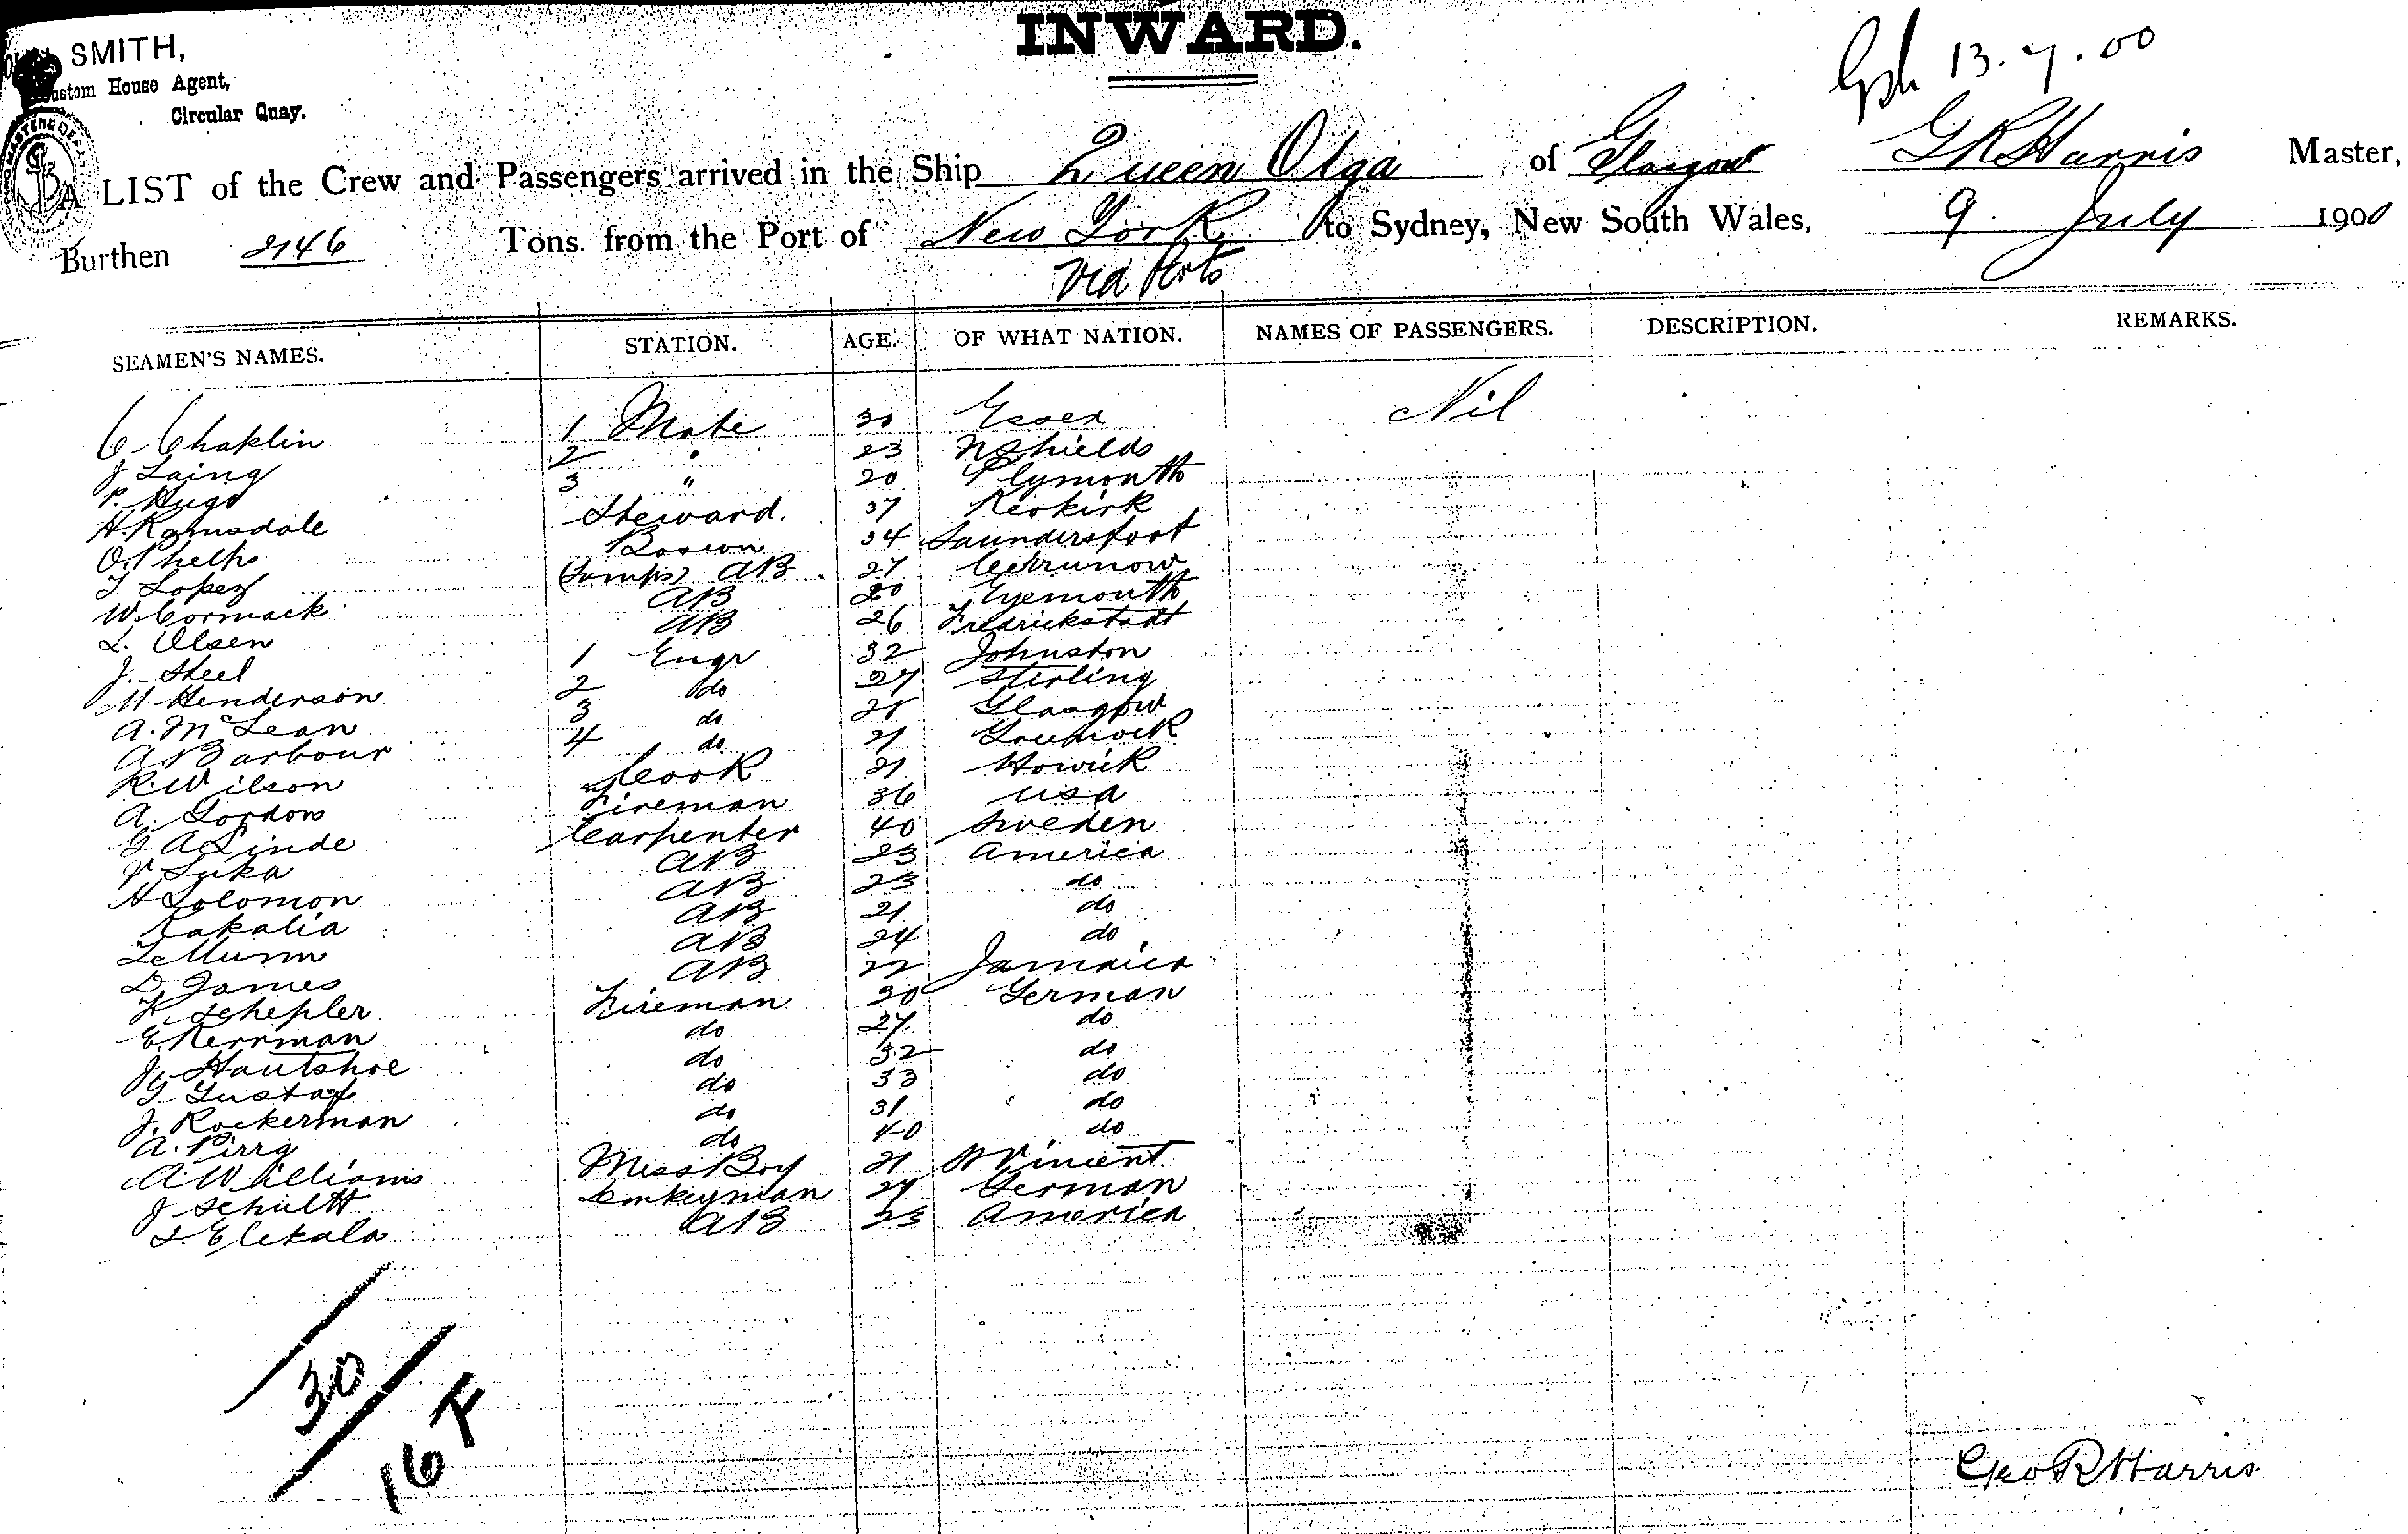 INWARD.
SMITH,
Custom House Agent,
Circular Quay.
13.7.00
A LIST of the Crew and Passengers arrived in the Ship Queen Olga of Glasgow G R Harris Master,
Burthen 2146 Tons. from the Port of New York to Sydney, New South Wales, 9 July 1900
via Ports
SEAMEN'S NAMES. STATION. AGE. OF WHAT NATION. NAMES OF PASSENGERS. DESCRIPTION. REMARKS.
C Chaklin 1 Mate 30 Essex Nil
J Laing 2 " 23 N Shields
P. Hugo 3 " 20 Plymouth
H. Ramsdale Steward. 37 
O. Phelps Bosswn 34 Saundersfoot
T. Lopez (Lamps) AB 27
W. Cormack AB 20 Eyemouth
L. Olsen AB 26 Fredrickstadt
J. Steel 1 Engr 32 Johnston
Henderson 2 do 27 Sterling
A. McLean 3 do Glasgow
A Barbour 4 do 21
R. Wilson Cook 21 Howick
A. Gordon Fireman 36 USA
G A Linde Carpenter 40 Sweden
V. Luka AB 23 America
H Solomon AB 23 do
Kakalia AB 21 do
AB 24 do
D. James AB 22 Jamaica
K. Schepler Fireman 30 German
E. Kerrman do 27 do
J. Hautshoe do 32 do
G Gustaf do 33 do
J. Rockerman do 31 do
A. Pirrg do 40 do
A. Williams Mess Boy 21 St Vincent
J Schultt Donkeyman 27 German
L. Elekala AB 23 America
30
16 F
Geo R Harris